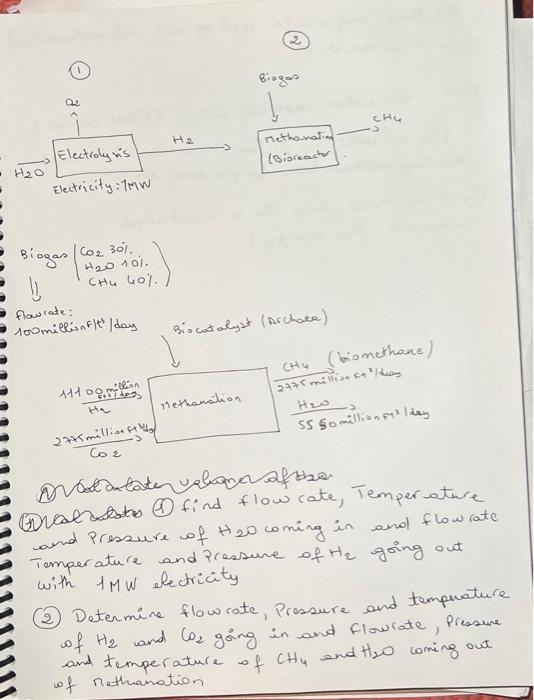 ①
②
Biogas
O2
CH4
H2
Electrolysis
Methanation
(Bioreactor
H2O
Electricity: 1MW
Biogas (CO2 30%.
H2O 10%.
CH4 40%.)
flowrate:
100 million Ft³/day
Biocatalyst (Archaea)
CH4 (biomethane)
2775 million ft³/day
11100 million ft³/day
H2
Methanation
H2O
5550 million ft³/day
2775 million ft³/day
CO2
① find flow rate, Temperature
and Pressure of H2O coming in and flow rate
Temperature and Pressure of H2 going out
with 1MW electricity
② Determine flowrate, Pressure and temperature
of H2 and CO2 going in and flowrate, Pressure
and temperature of CH4 and H2O coming out
of Methanation